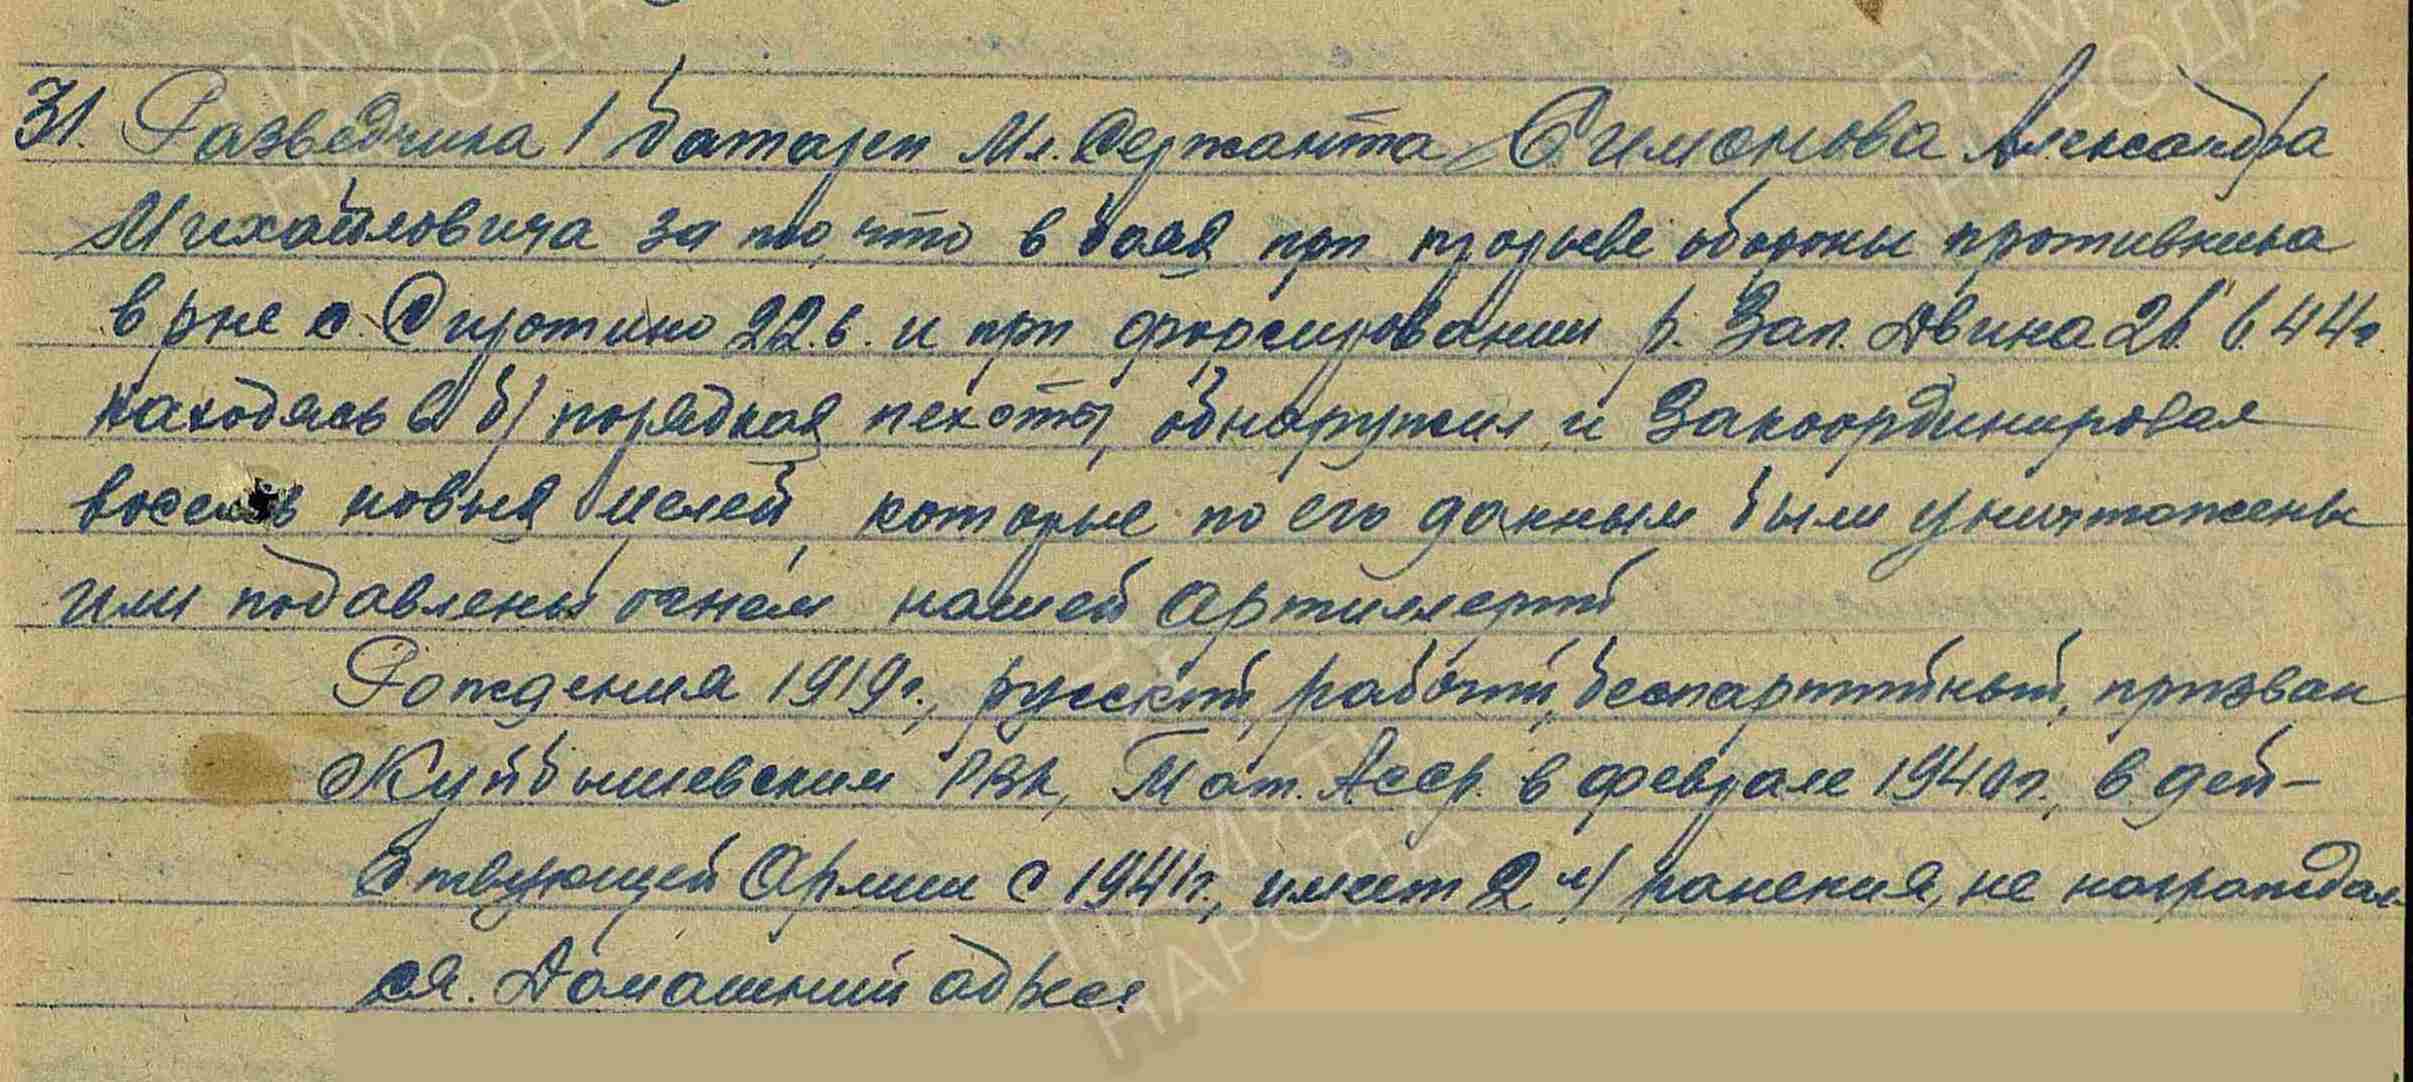 31. Разведчика 1 батареи Мл. Сержанта Симонова Александра
Михайловича за то, что в боях при прорыве обороны противника
в р-не с. Сиротино 22.6. и при форсировании р. Зап. Двина 26.44г.
находясь в б/порядках пехоты, обнаружил и закоординировал
восемь новых целей, которые по его данным были уничтожены
или подавлены огнем нашей Артиллерии
Рождения 1919г., русский, рабочий, беспартийный, призван
Куйбышевским РВК, Тат. Асср. в феврале 1940г., в дей-
ствующей Армии с 1941г., имеет 2 л/ранения, не награждал-
ся. Домашний адрес:
ПАМЯТЬ НАРОДА